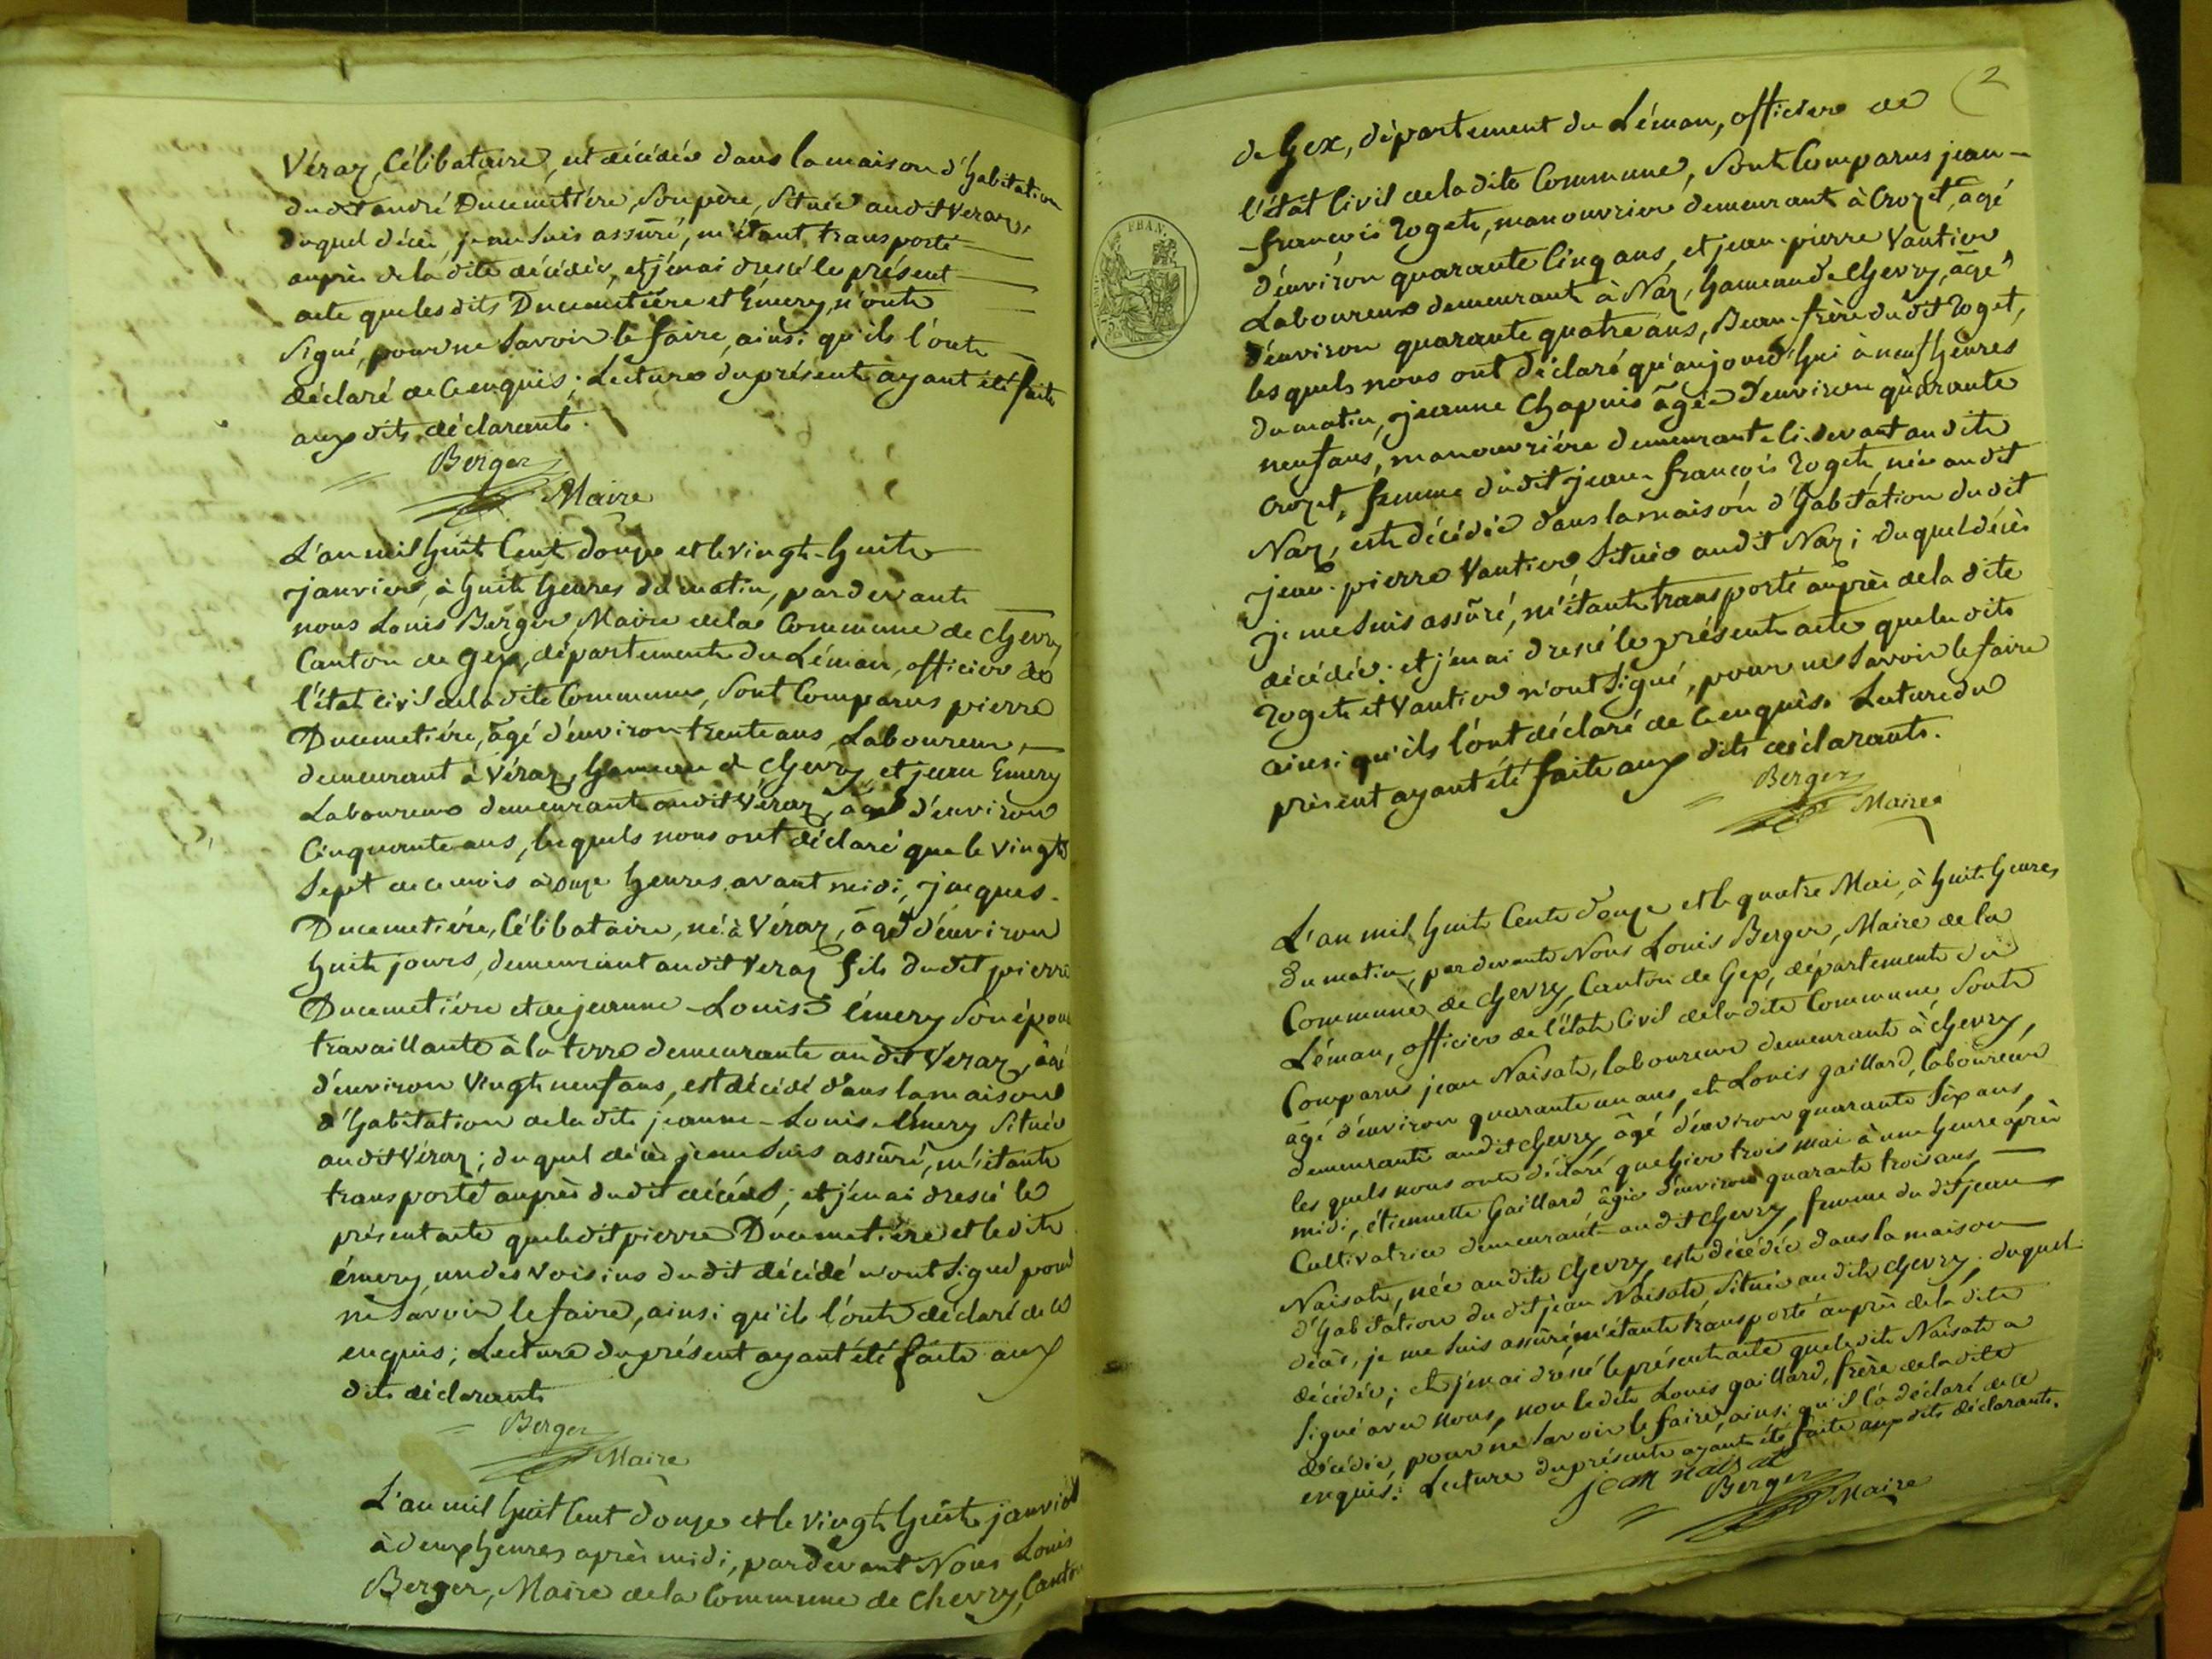 Véraz, Célibataire, est décédée dans la maison d'habitation
dudit andré Ducimetiére, Son père, Située audit Veraz,
duquel décès je me suis assûré, m'étant transporté
auprès de la dite décédée, et j'en ai dressé le présent
acte que les dits Ducimetiére et Emery, n'ont
Signé, pour ne Savoir le faire, ainsi qu'ils l'ont
déclaré de Ce enquis; Lecture du présent ayant été faite
aux dits déclarants.
Berger
Maire
L'an mil huit Cent douze et le vingt-huit
janvier, à huit heures du matin, pardevant
nous Louis Berger, Maire de la Commune de chevry
Canton de Gex, département du Léman, officier de
l'état civil de la dite Commune, Sont Comparus pierre
Ducimetiére, âgé d'environ trente ans, Laboureur,
demeurant à Véraz, hameau de chevry, et jean Emery
Laboureur demeurant audit Véraz, âgé d'environ
Cinquante ans, lesquels nous ont déclaré que le vingt
Sept de ce mois à onze heures avant midi, jacques
Ducimetiére, Célibataire, né à Véraz, âgé d'environ
huit jours, demeurant audit Veraz fils dudit pierre
Ducimetiére et de jeanne-Louise émery Son épouse
travaillante à la terre demeurante audit Veraz, âgé
d'environ vingt neuf ans, est décédé dans la maison
d'habitation de la dite jeanne-Louise Emery Située
audit Véraz; duquel décès je me Suis assûré, m'étant
transporté auprès dudit décédé; et j'en ai dressé le
présent acte que ledit pierre Ducimetiére et ledit
émery, un des voisins dudit décédé n'ont Signé pour
ne Savoir le faire, ainsi qu'ils l'ont déclaré de Ce
enquis; Lecture du présent ayant été faite aux
dits déclarants
Berger
Maire
L'an mil huit Cent douze et le vingt huit janvier
à deux heures après midi, pardevant Nous Louis
Berger, Maire de la Commune de Chevry, Canton
2
de Gex, département du Léman, officier de
l'état Civil de la dite Commune, Sont Comparus jean-
françois Roget, manouvrier demeurant à Crozet, âgé
d'environ quarante Cinq ans, et jean-pierre Vautier
Laboureur demeurant à Naz, hameau de Chevry, âgé
d'environ quarante quatre ans, Beau-frère dudit Roget,
lesquels nous ont déclaré qu'aujourd'hui à neuf heures
du matin, jeanne Chapuis âgée d'environ quarante
neuf ans, manouvriére demeurante Ci-devant audit
Crozet, femme dudit jean-françois Roget, née audit
Naz, est décédée dans la maison d'habitation dudit
jean-pierre Vautier Située audit Naz; duquel décès
je me Suis assûré, m'étant transporté auprès de la dite
décédée; et j'en ai dressé le présent acte que les dits
Roget et Vautier n'ont Signé, pour ne Savoir le faire
ainsi qu'ils l'ont déclaré de Ce enquis. Lecture du
présent ayant été faite aux dits déclarants.
Berger
Maire
L'an mil huit Cent douze et le quatre Mai, à huit heures
du matin, pardevant Nous Louis Berger, Maire de la
Commune de chevry, Canton de Gex, département du
Léman, officier de l'état Civil de la dite Commune, Sont
Comparus jean Naisat, laboureur demeurant à chevry,
âgé d'environ quarante un ans, et Louis gaillard, laboureur
demeurant audit chevry, âgé d'environ quarante Six ans,
les quels nous ont déclaré que hier trois mai à une heure après
midi, étiennette Gaillard âgée d'environ quarante trois ans,
Cultivatrice demeurant audit chevry, femme dudit jean
Naisat, née audit chevry, est décédée dans la maison
d'habitation dudit jean Naisat, Située audit chevry; duquel
décès, je me Suis assûré, m'étant transporté auprès de la dite
décédée; et j'en ai dressé le présent acte que ledit Naisat a
Signé avec nous, non ledit Louis gaillard, frère de la dite
décédée, pour ne Savoir le faire, ainsi qu'il l'a déclaré de Ce
enquis; Lecture du présent ayant été faite aux dits déclarants.
jean naisat
Berger
Maire